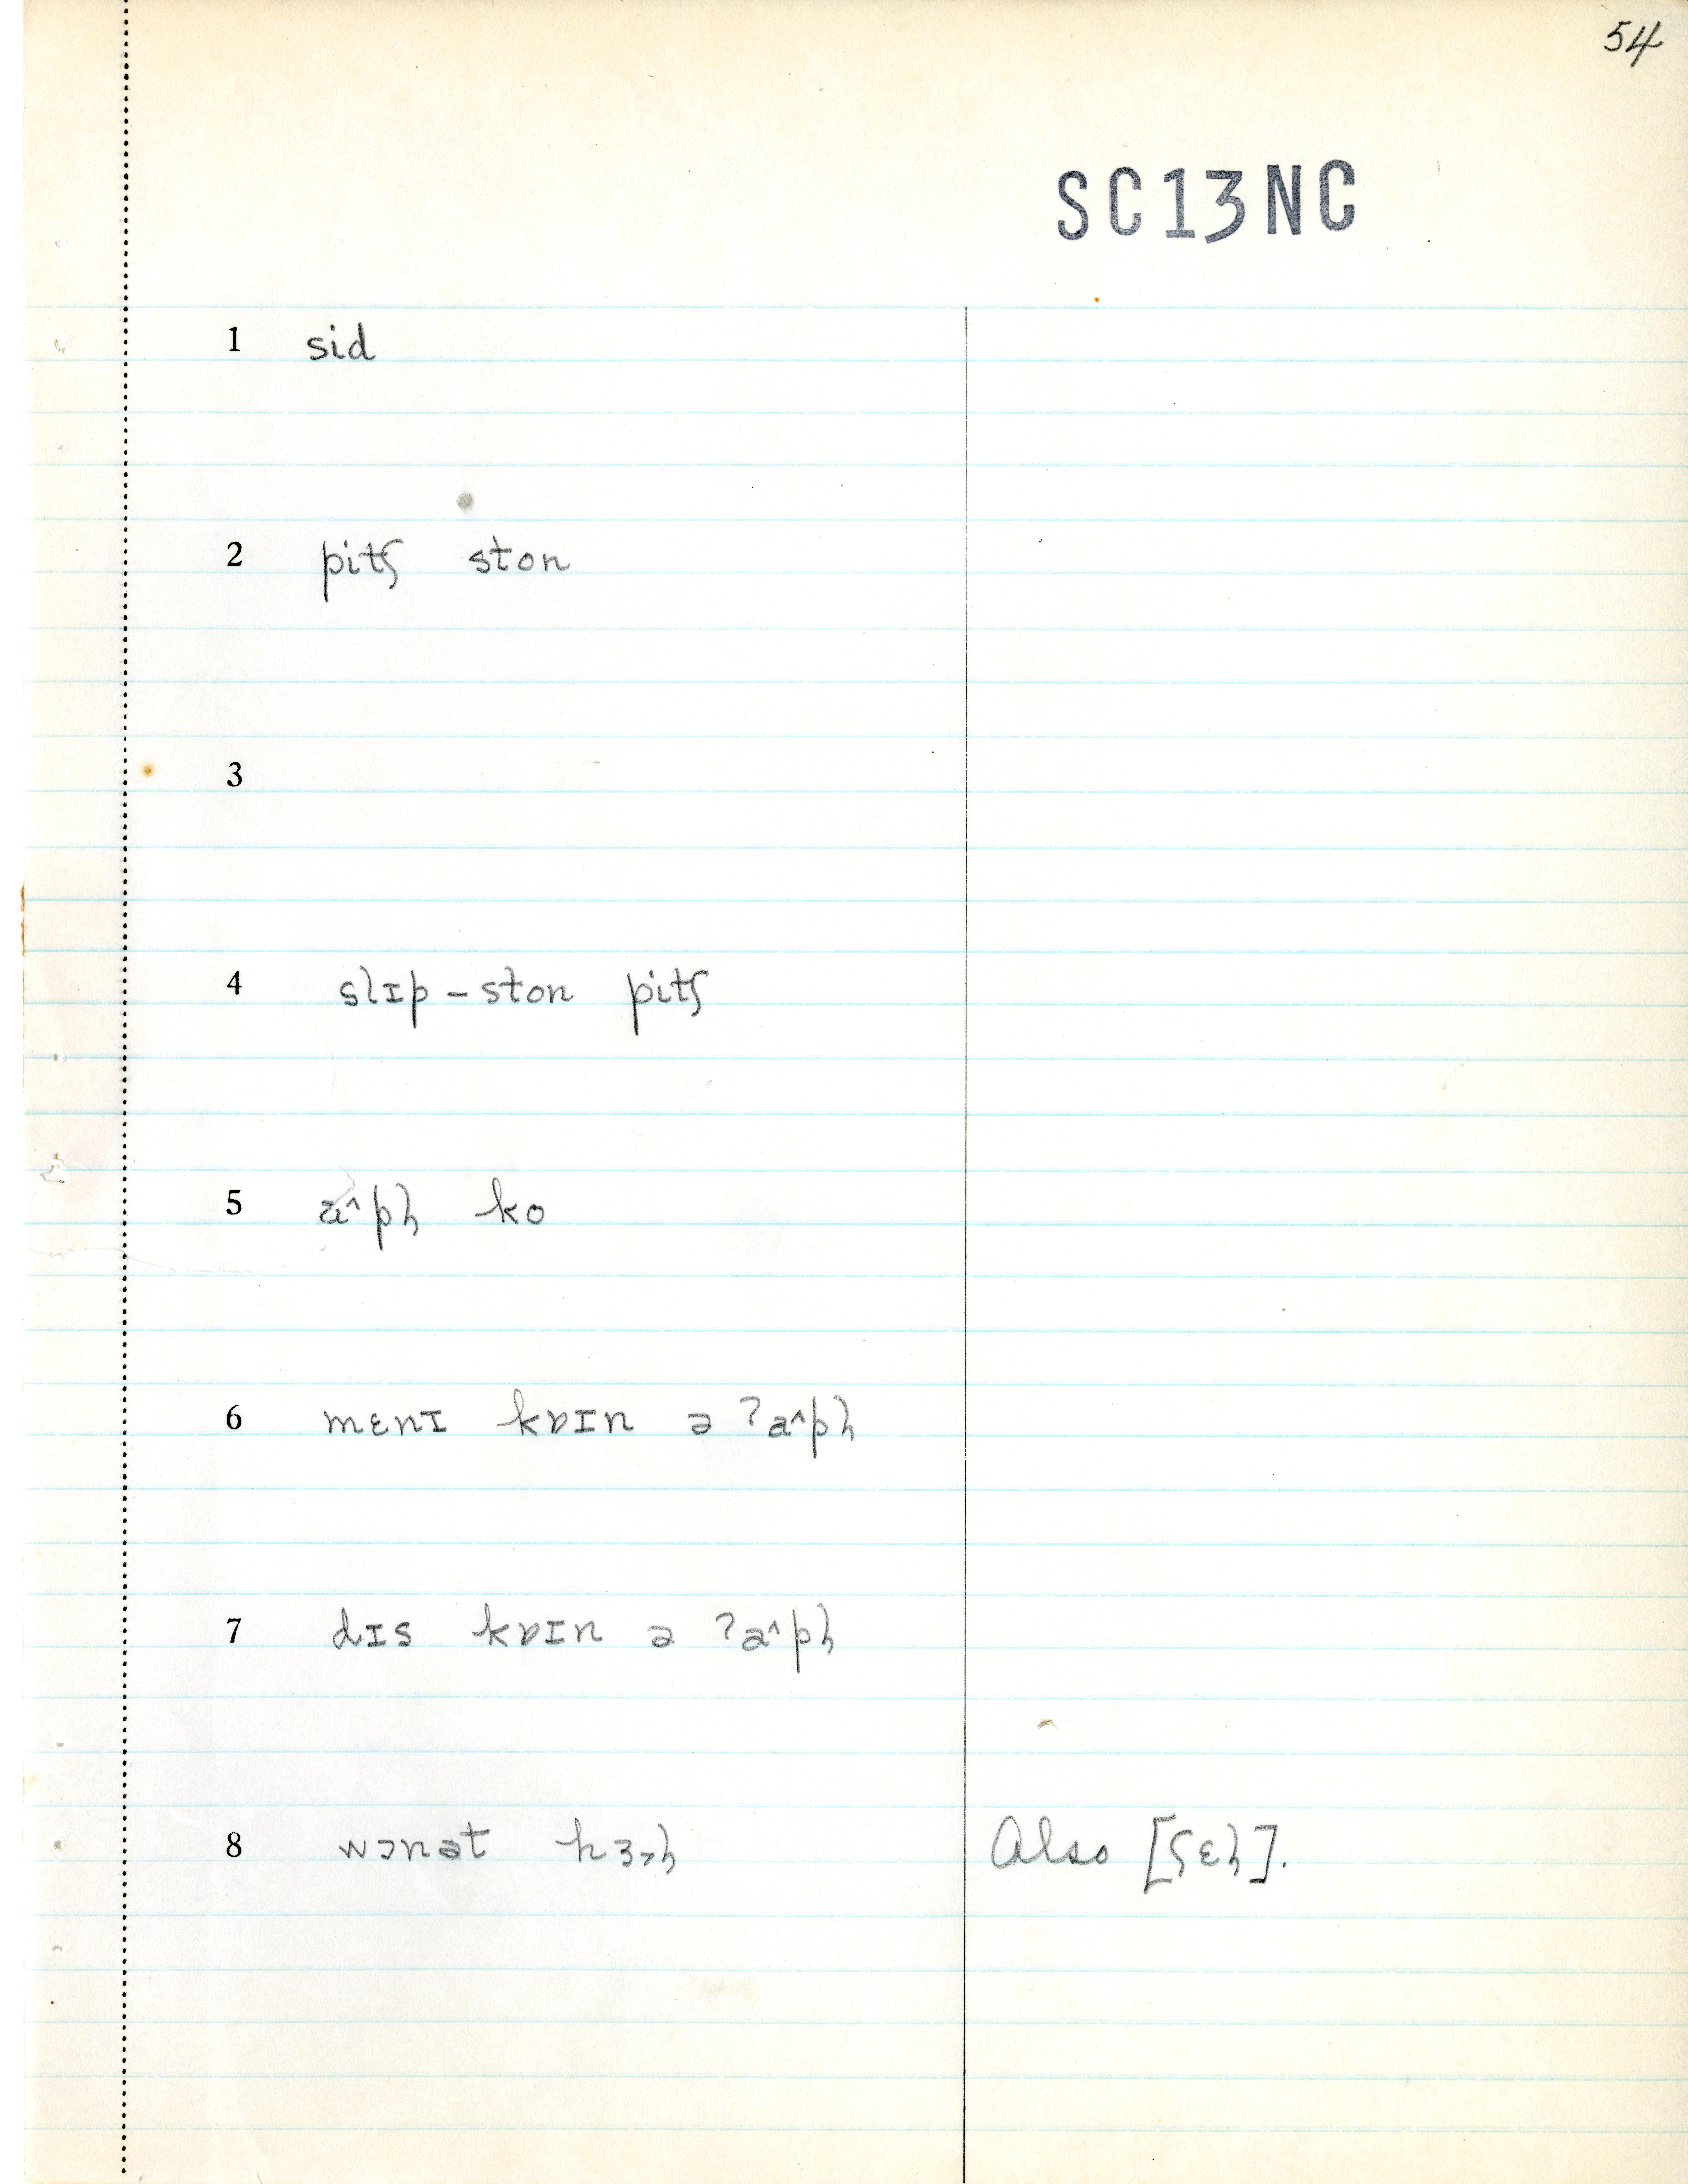 54
SC13NC
1 sid
2 pitʃ ston
3
4 slɪp – ston pitʃ
6 mɛnɪ kɒɪn ə ʔa^pl̩
7 dɪs kɒɪn ə ʔa^pl̩
8 wɔnət Also [ʃɛl̩].